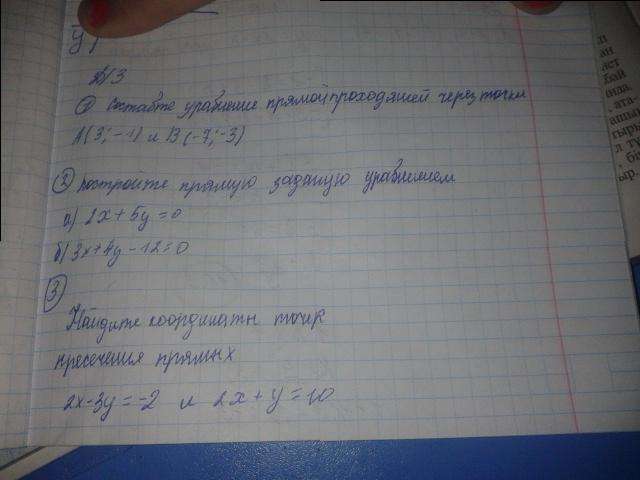 у)
№3
① составте уравнение прямой проходящей через точки
А(3; -1) и В(-7; -3)
② постройте прямую заданую уравнением
а) 2x + 5y = 0
б) 3x + 4y - 12 = 0
③
Найдите координаты точик
пресечения прямых
2x - 3y = -2 и 2x + y = 10